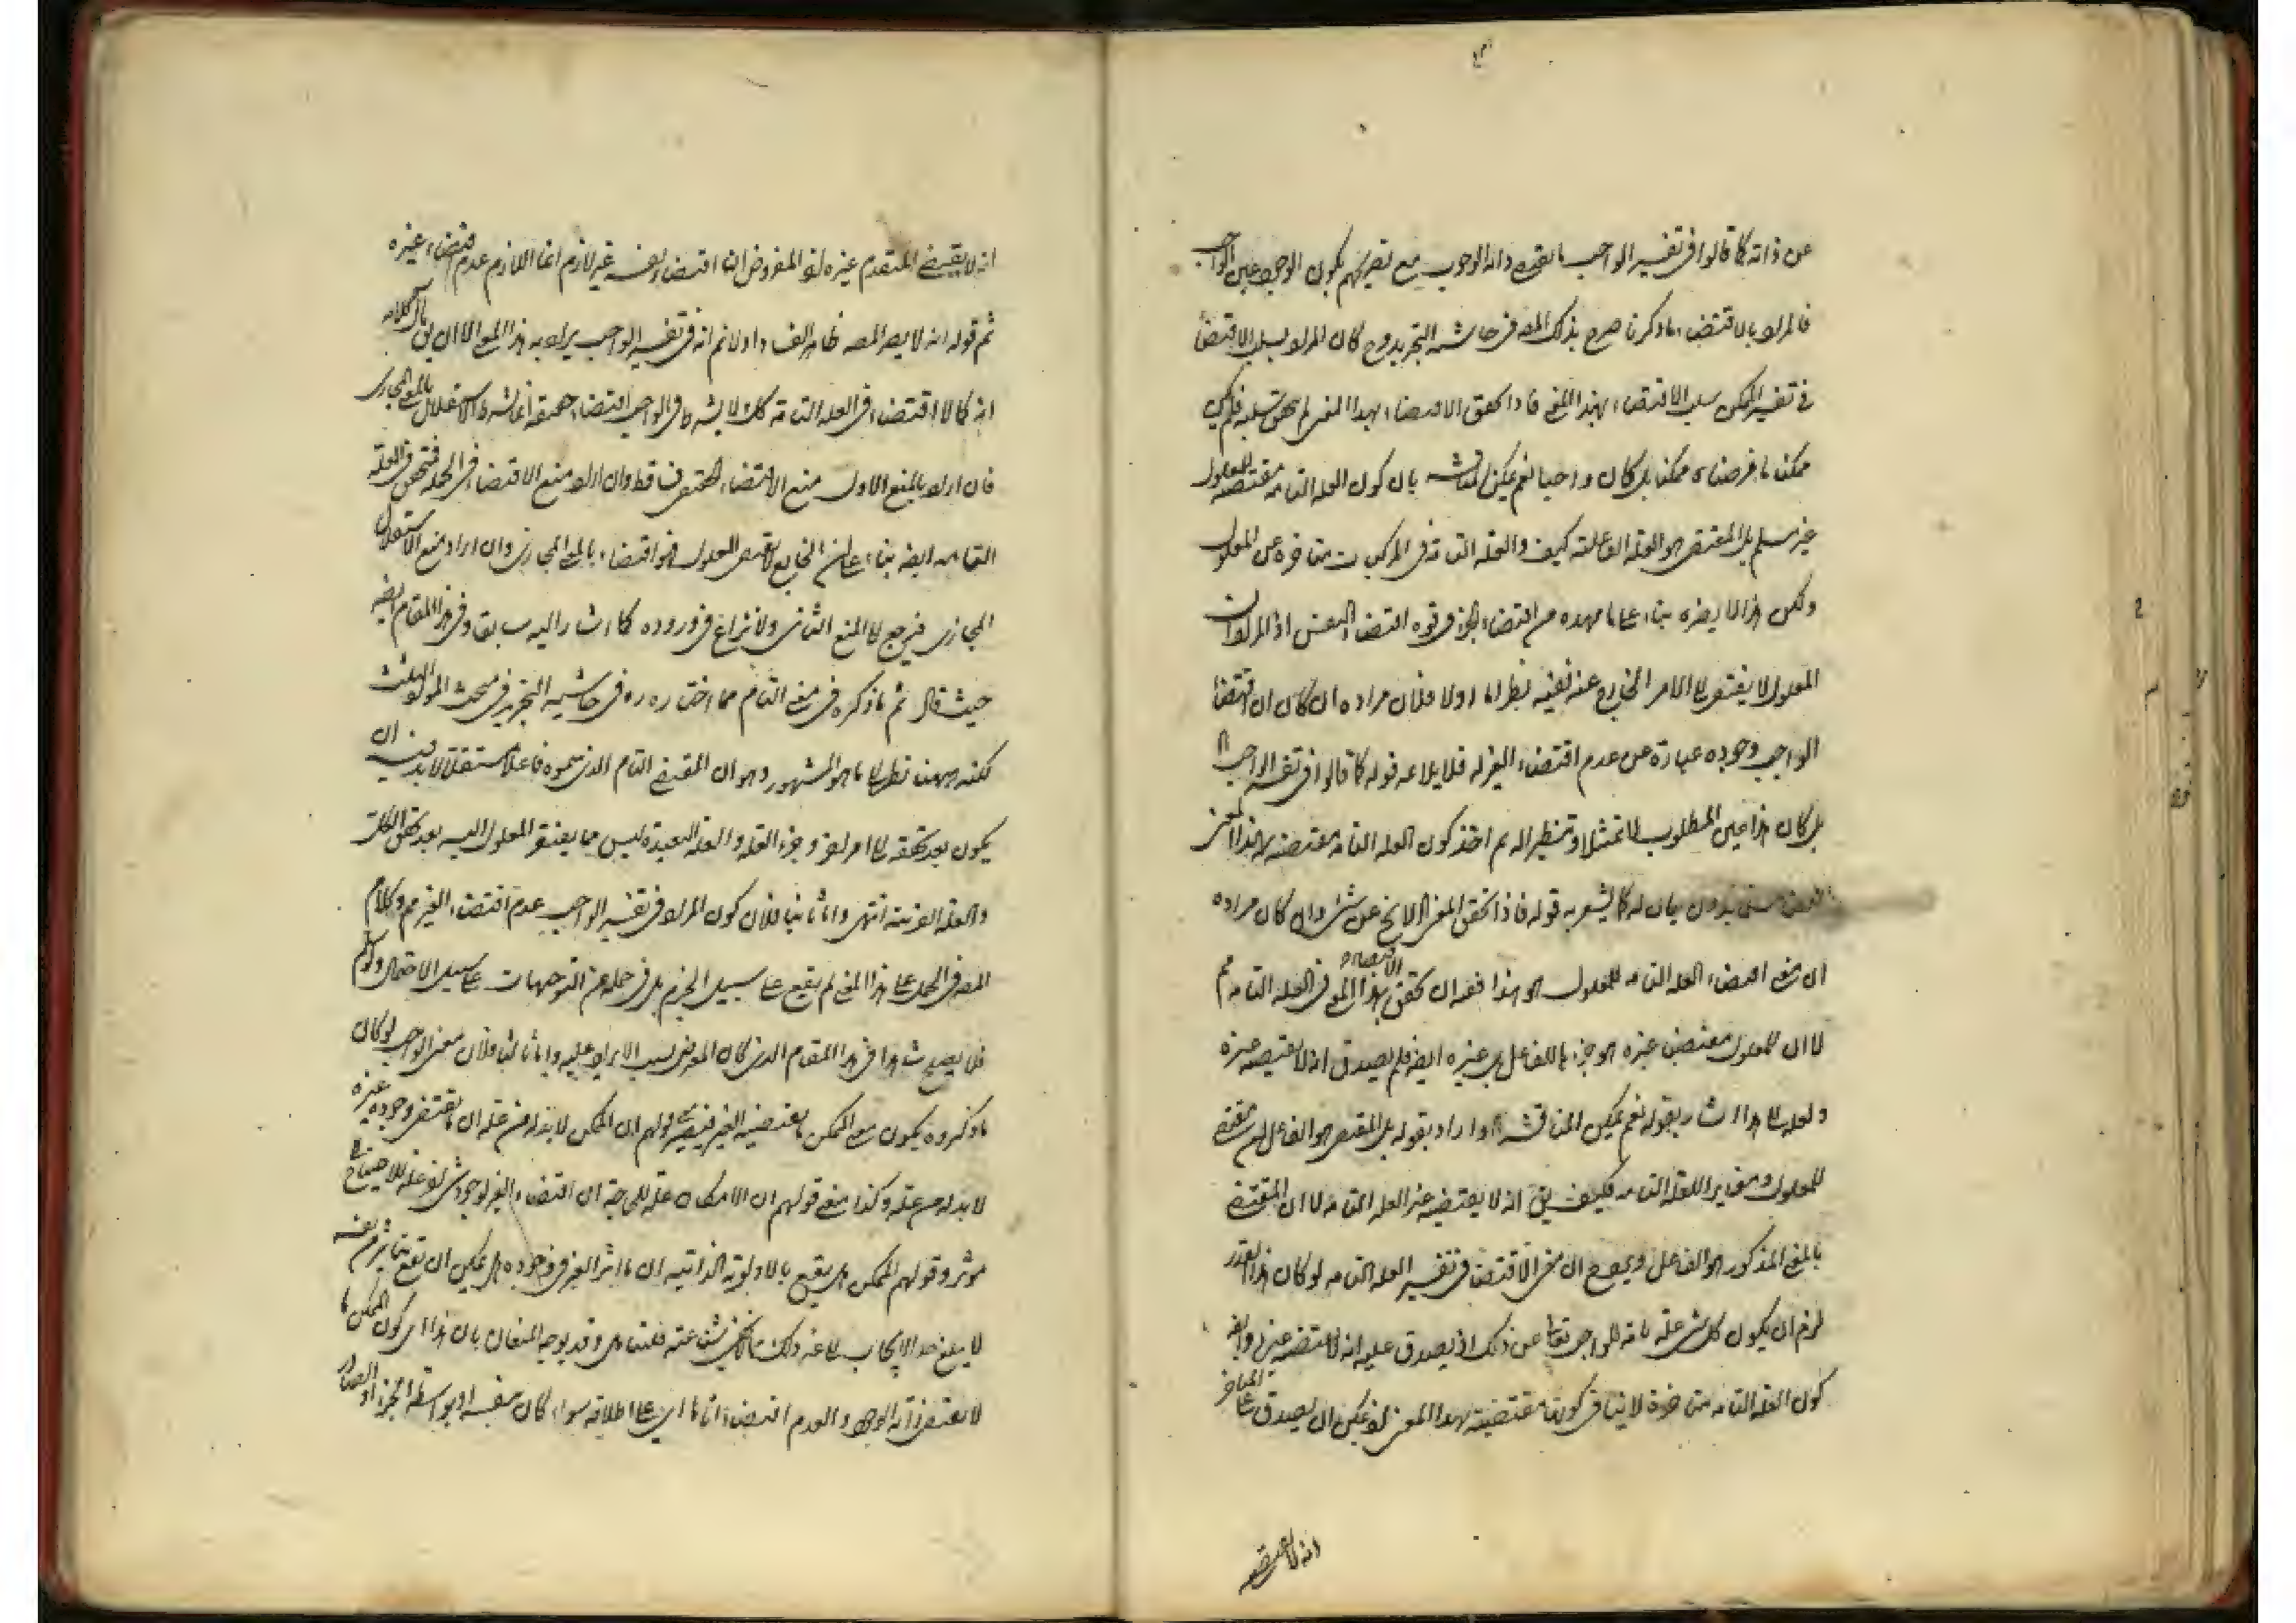 عن ذاته كما قالوا فى تفسير الواجب ما يقتضى ذاته الوجوب مع تصريحهم بكون الوجوب عين الواجب
فالمراد بالاقتضاء ما ذكرنا صرح بذلك المصه فى حاشية التجريد وح كان المراد بسلب الاقتضاء
فى تفسير الممكن سلب الاقتضاء بهذا المعنى فاذا تحقق الاقتضاء بهذا المعنى لم يتحقق سلبه فلم يكن
ممكنا ما فرضناه ممكنا بل كان واجبا نعم يمكن المناقشة بان كون العله التامه مقتضيه للمعلول
غير مسلم بل المقتضى هو العله الفاعلية كيف والعله التامة فى المركبات متاخره عن المعلول
ولكن هذا لا يضره بناء على ما مهده من اقتضاء الجزء فى قوه اقتضاء النفس اذ المراد ان
المعلول لا يفتقر الى الامر الخارج عنه نفيه نظر اما اولا فلان مراده ان كان ان اقتضاء
الواجب وجوده عبارة عن عدم اقتضاء الغير له فلا يلايمه قوله كما قالوا فى تفسير الواجب اه
بل كان هذا عين المطلوب لا تمثيلا وتنظيرا له ثم اخذ كون العله التامه مقتضيه بهذا المعنى
بدون بيان له كما يشعر به قوله فاذا تحقق المعنى الا لا يخ عن شئ وان كان مراده
ان معنى اقتضاء العله التامه للمعلول هو هذا ففيه ان تحقق الاقتضاء بهذا المعنى فى العله التامه مم
لا ان للمعلول مقتضيا غيره هو جزء ما للفاعل بل غيره ايضه فلم يصدق انه لا يقتضيه غيره
ولعله الى هذا اشار بقوله نعم يمكن المناقشه اه واراد بقوله بل المقتضى هو الفاعل انه مقتضى
للمعلول ومغاير للعله التامه فكيف يق انه لا يقتضيه غير العله التامه لا ان المقتضى
بالمعنى المذكور هو الفاعل ويصح ان معنى الاقتضاء فى تفسير العله التامه لو كان هذا القدر
لزم ان يكون كل شئ علة تامه للواجب تعالى عن ذلك اذ يصدق عليه انه لا يقتضيه غيره وايضه
كون العله التامه متاخرة لا ينافى كونها مقتضية بهذا المعنى اذ يمكن ان يصدق على المتاخر
انه لا يقتضيه
انه لا يقتضى المتقدم غيره اذ المفروض ان اقتضاء نفسه غير لازم انما اللازم عدم اقتضاء غيره
ثم قوله انه لا يضر المصه ظاهر الفساد اذ لا نم انه فى تفسير الواجب يراد به هذا المعنى الا ان يق مآل كلامه
انه كما لا اقتضاء فى العله التامة كك لا يشترط فى الواجب اقتضاء حقيقه انما يشترط الاستقلال بالمعنى المجازى
فان اراد بالمنع الاول منع الاقتضاء الحقيقى فساقط وان اراد منع الاقتضاء فى الجمله فتحقق فى العله
التامه ايضه بناء على ان الخارج لا يقتضى المعلول فهو اقتضاء بالمعنى المجازى وان اراد منع الاستقلال
المجازى فيرجع الى المنع الثانى ولا نزاع فى وروده كما اشار اليه سابقا وفى هذا المقام ايضه
حيث قال ثم ما ذكره فى معنى التام مما اختاره فى حاشيه التجريد فى مبحث المواد الثلث
لكنه ههنا نظر الى ما هو المشهور وهو ان المقتضى التام الذى سموه فاعلا مستقلا لا بد فيه ان
يكون بعد تحققه الى امر اخر وجزء العله والعله البعيدة ليس مما يفتقر المعلول اليه بعد تحقق الكل
والعله القريبة انتهى واما ثانيا فلان كون المراد فى تفسير الواجب عدم اقتضاء الغير مم وكلام
المصه فى الحمل على هذا المعنى لم يقع على سبيل الجزم بل فى جمله من التوجيهات على سبيل الاحتمال ولو سلم
فلا يصح هذا فى هذا المقام الذى كان المعرض بسبب الايراد عليه واما ثالثا فلان معنى الواجب لو كان
ما ذكروه يكون معنى الممكن ما يقتضيه الغير فمعنى قولهم ان الممكن لا بد له من عله ان ما يقتضى وجوده غيره
لا بد له من عله وكذا معنى قولهم ان الامكان عله للحاجة ان اقتضاء الغير لوجود شئ اخر علة للاحتياج الى
موثر وقولهم الممكن هل يقع بالاولوية الذاتيه ان ما اثر الغير فى وجوده هل يمكن ان يقع بتاثير من نفسه
لا يبلغ حد الايجاب الى غير ذلك مما لا يخفى شناعته فلتتامل وقد يوجه المقال بان هذا اى كون الممكن ما
لا يقتضى ذاته الوجود والعدم اقتضاء تاما اى على اطلاقه سواء كان بنفسه او بواسطة الجزء او الصادر